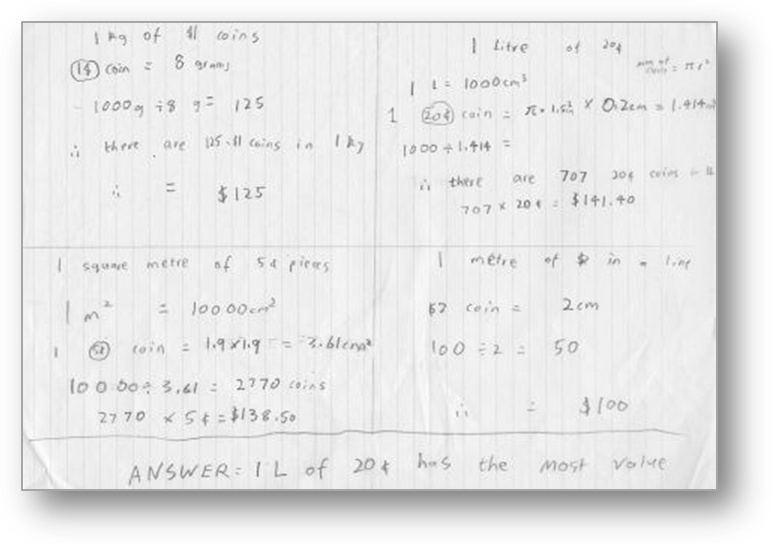 1 kg of $1 coins
1$ coin = 8 grams
1000g ÷ 8 g = 125
∴ there are 125 $1 coins in 1 kg
∴ = $125
1 Litre of 20¢
= πr²
1 L = 1000cm³
1 20¢ coin = π × 1.5² × 0.2cm = 1.414
1000 ÷ 1.414 =
∴ there are 707 20¢ coins in 1L
707 × 20¢ = $141.40
1 square metre of 5¢ pieces
1 m² = 10000cm²
1 5¢ coin = 1.9×1.9 = 3.61cm²
10000 ÷ 3.61 = 2770 coins
2770 × 5¢ = $138.50
1 metre of $ in a line
$2 coin = 2cm
100 ÷ 2 = 50
∴ = $100
ANSWER: 1L of 20¢ has the most value